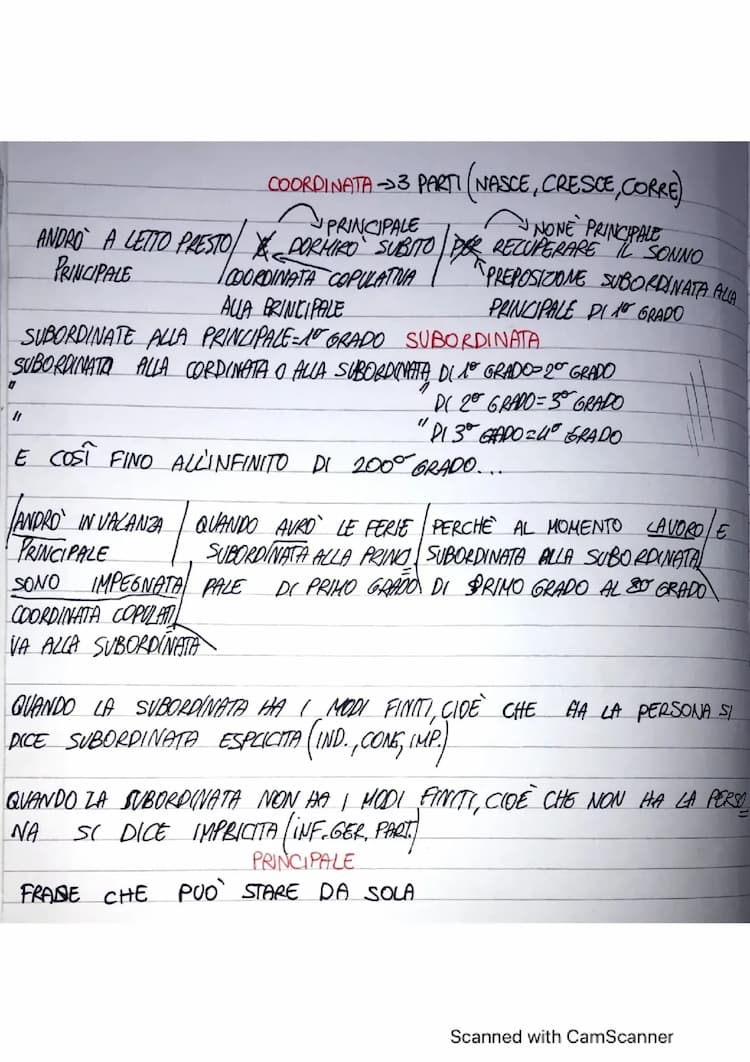 COORDINATA → 3 PARTI (NASCE, CRESCE, CORRE)
PRINCIPALE NON È PRINCIPALE
ANDRÒ A LETTO PRESTO / E DORMIRÒ SUBITO / PER RECUPERARE IL SONNO
PRINCIPALE / COORDINATA COPULATIVA PREPOSIZIONE SUBORDINATA ALLA
ALLA PRINCIPALE PRINCIPALE DI 1º GRADO
SUBORDINATE ALLA PRINCIPALE = 1º GRADO SUBORDINATA
SUBORDINATA ALLA CORDINATA O ALLA SUBORDINATA DI 1º GRADO = 2º GRADO
" " DI 2º GRADO = 3º GRADO
" " DI 3º GRADO = 4º GRADO
E COSÎ FINO ALL'INFINITO DI 200º GRADO...
/ ANDRÒ IN VACANZA / QUANDO AVRÒ LE FERIE / PERCHÈ AL MOMENTO LAVORO / E
PRINCIPALE SUBORDINATA ALLA PRINCI= SUBORDINATA ALLA SUBORDINATA
SONO IMPEGNATA PALE DI PRIMO GRADO DI PRIMO GRADO AL GRADO
COORDINATA COPULATI
VA ALLA SUBORDINATA
QUANDO LA SUBORDINATA HA I MODI FINITI, CIOÈ CHE HA LA PERSONA SI
DICE SUBORDINATA ESPLICITA (IND., CONG, IMP.)
QUANDO LA SUBORDINATA NON HA I MODI FINITI, CIOÈ CHE NON HA LA PERSO=
NA SI DICE IMPRICITA (INF. GER. PART.)
PRINCIPALE
FRASE CHE PUÒ STARE DA SOLA
Scanned with CamScanner